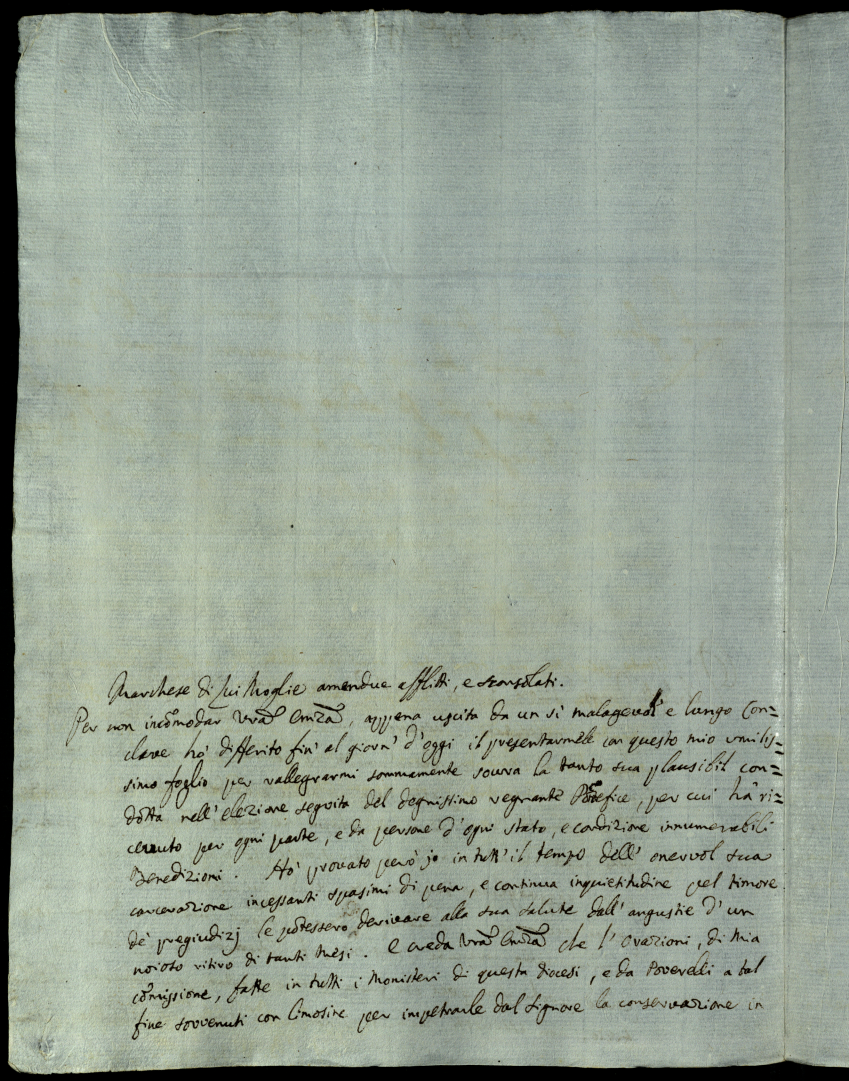 Marchese di lui Moglie amendue afflitti, e sconsolati.
Per non incõmodar Vrã Emzã, appena uscita da un sì malagevol' e lungo Con=
clave hò differito fin' al giorn' d'oggi il presentarmele con questo mio umilis=
simo foglio per rallegrarmi sommamente sovra la tanto sua plausibil con=
dotta nell'elezione seguita del degnissimo regnante Põtefice, per cui hà ri=
cevuto per ogni parte, e da persone d'ogni stato, e condizione innumerabili
Benedizioni. Hò provato però jo in tutt'il tempo dell' onervol sua
carcerazione incessanti spasimi di pena, e continua inquietitudine pel timore
de' pregiudizj le potessero derivare alla sua salute dall'angustie d'un
noioso ritiro di tanti Mesi. E creda Vrã Emzã che l'Orazioni, di mia
cõmissione, fatte in tutti i Monisteri di questa diocesi, e da Poverelli a tal
fine sovvenuti con limosine per impetrarle dal Signore la conservazione in